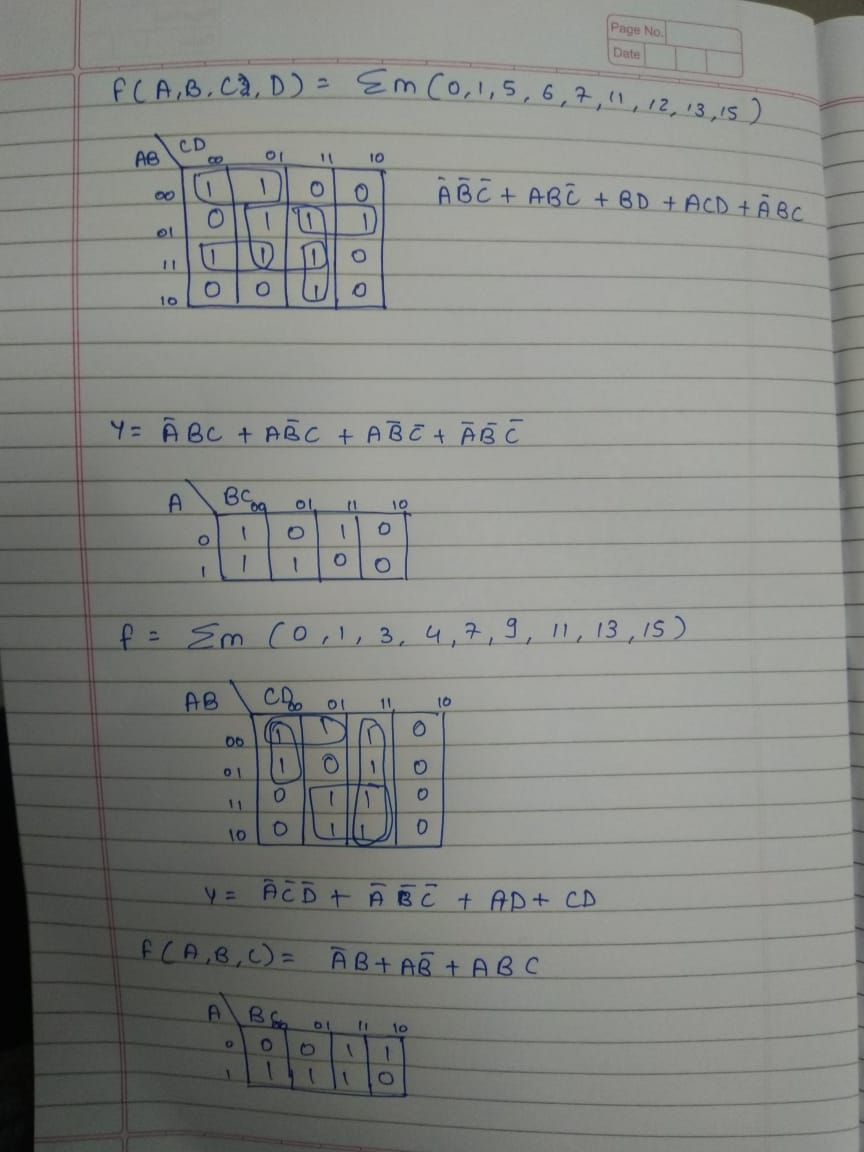 Page No.
Date
f(A,B,C,D) = Σm (0,1,5,6,7,11,12,13,15)
AB \ CD 00 01 11 10
00 1 1 0 0
01 0 1 1 1
11 1 1 1 0
10 0 0 1 0
ĀB̄C̄ + ABC̄ + BD + ACD + ĀBC
Y = ĀBC + AB̄C + AB̄C̄ + ĀB̄C̄
A \ BC 00 01 11 10
0 1 0 1 0
1 1 1 0 0
f = Σm (0,1,3,4,7,9,11,13,15)
AB \ CD 00 01 11 10
00 1 1 1 0
01 1 0 1 0
11 0 1 1 0
10 0 1 1 0
Y = ĀC̄D̄ + ĀB̄C̄ + AD + CD
f(A,B,C) = ĀB + AB̄ + ABC
A \ BC 00 01 11 10
0 0 0 1 1
1 1 1 1 0